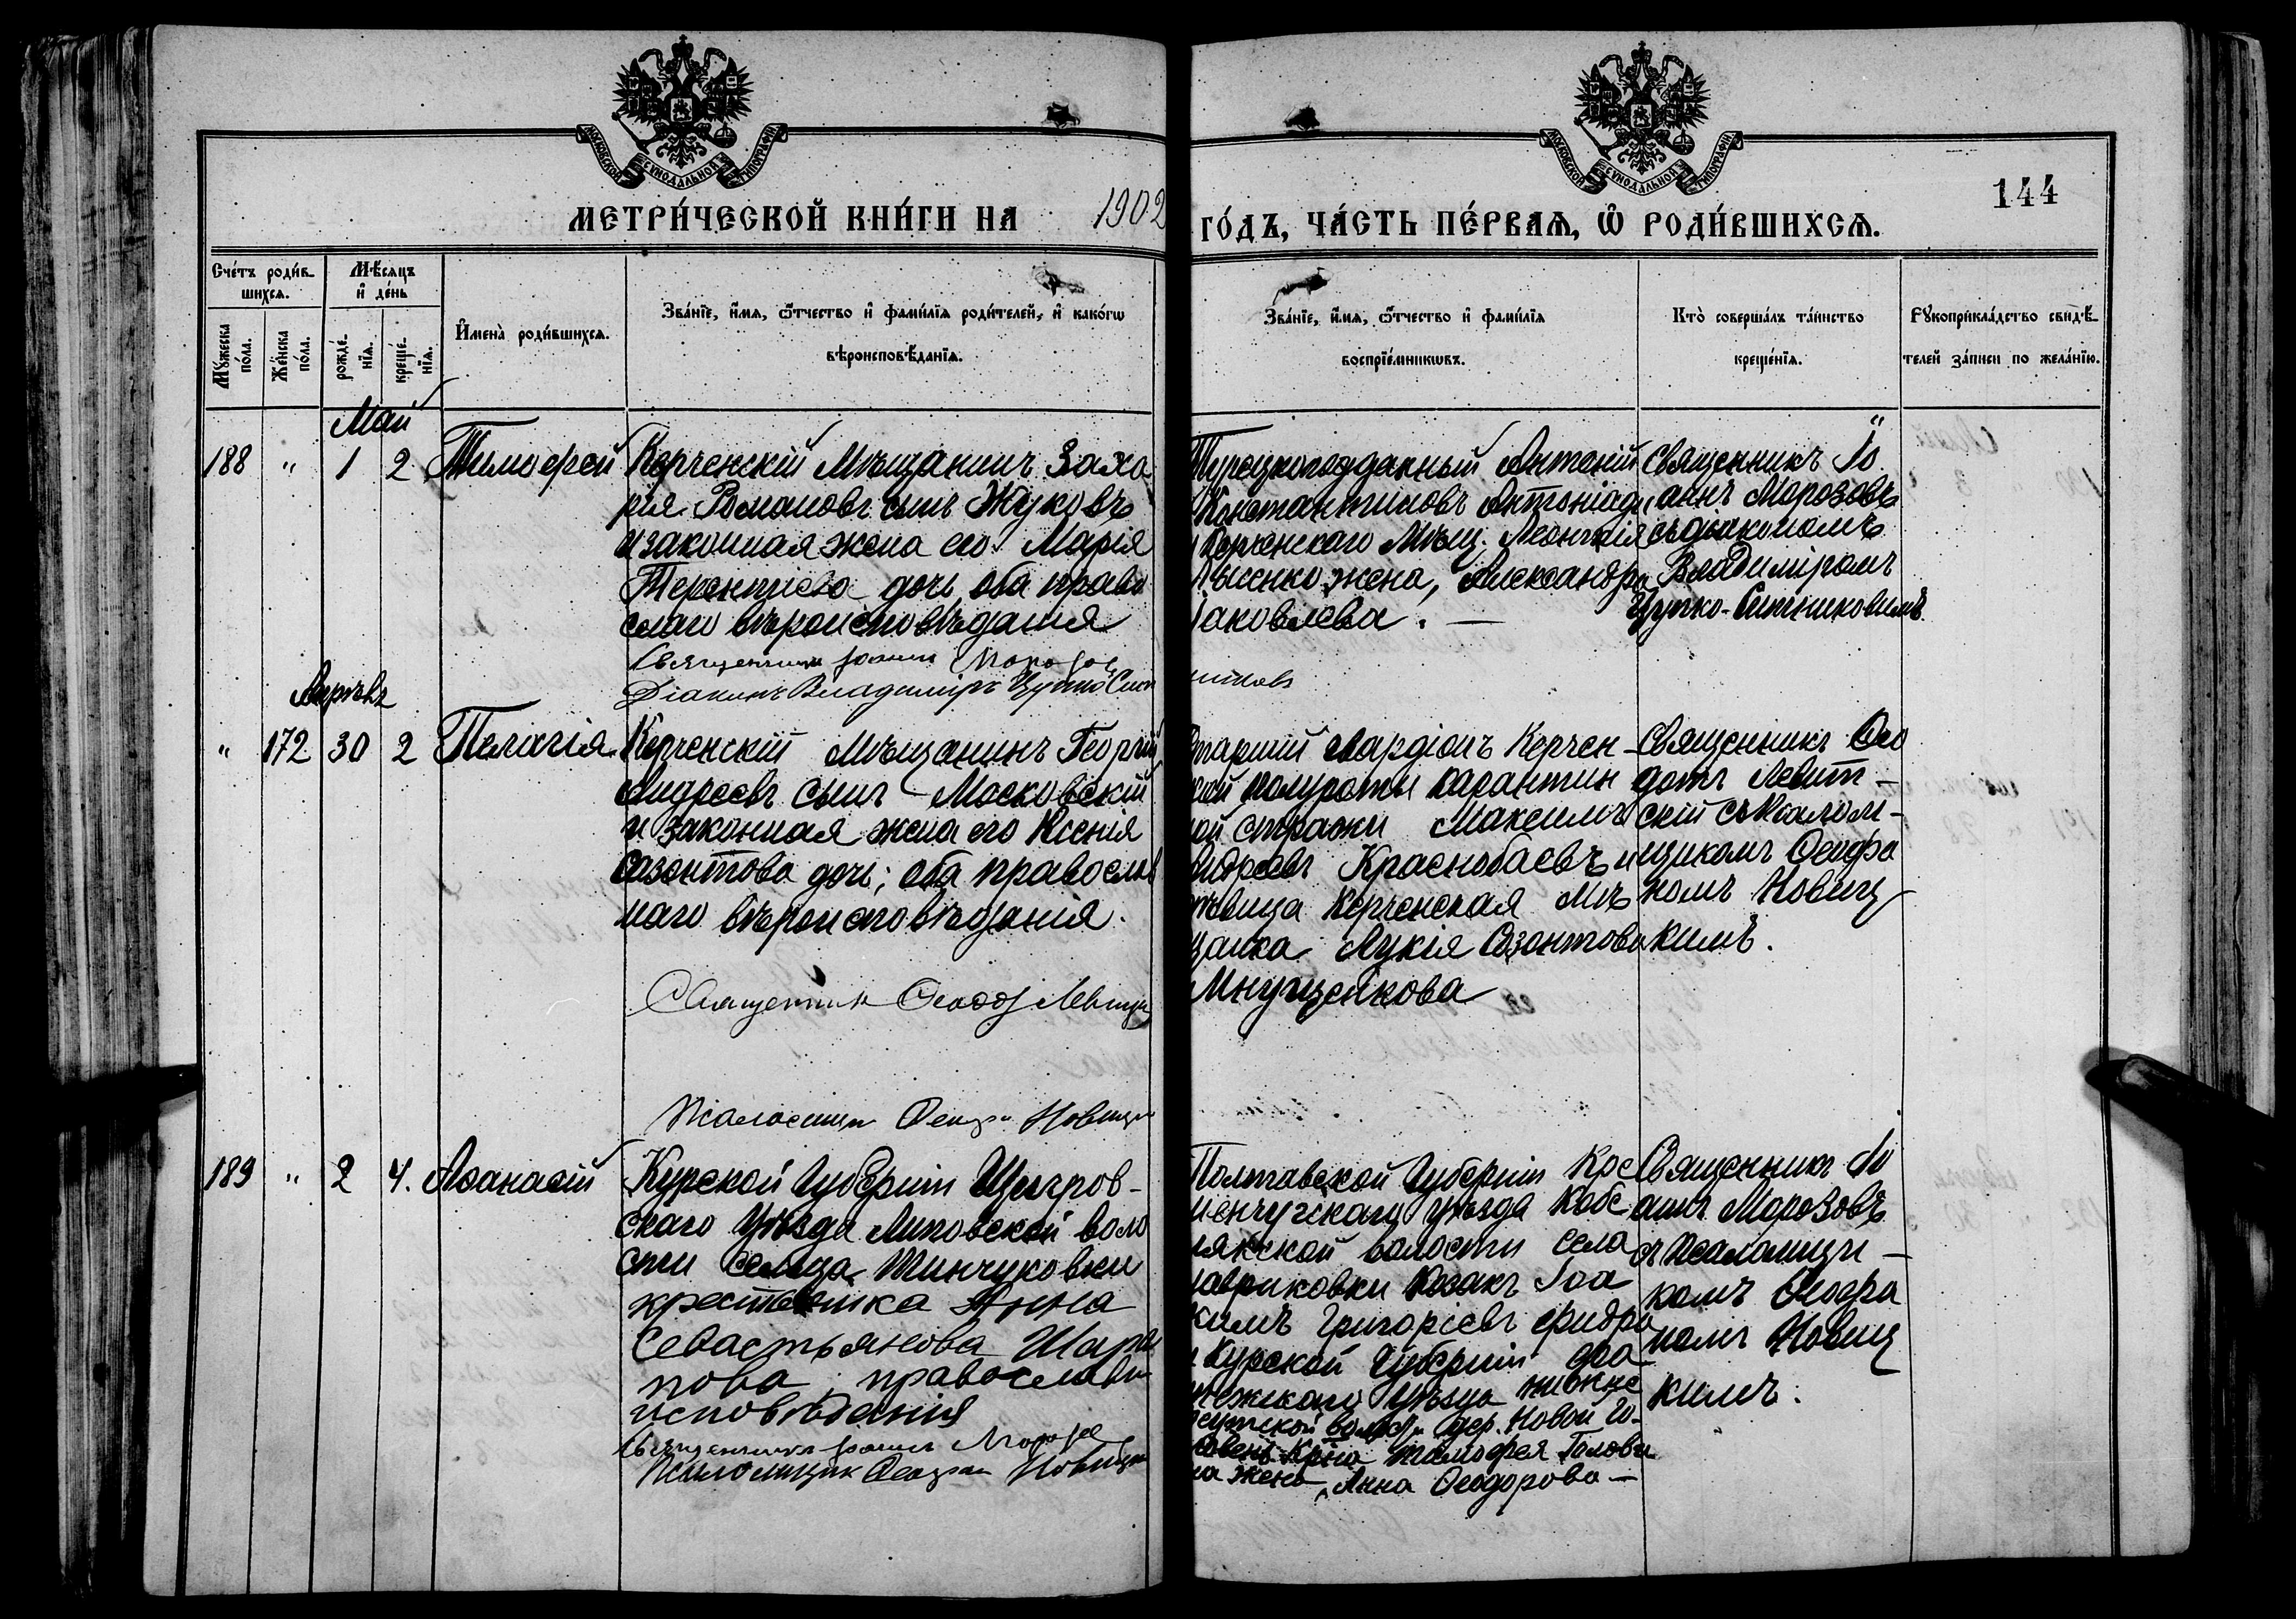 МОСКОВСКОЙ СУНОДАЛЬНОЙ ТИПОГРАФІИ
МОСКОВСКОЙ СУНОДАЛЬНОЙ ТИПОГРАФІИ
144
МЕТРИ́ЧЕСКОЙ КНИ́ГИ НА 1902
ГО́ДЪ, ЧА́СТЬ ПЕ́РВАѦ, Ѡ РОДИ́ВШИХСѦ.
Сче́тъ роди́в-
шихсѧ.
Мѣ́сяцъ
и҆ де́нь
Мꙋ́жеска
по́ла.
Же́нска
по́ла.
рожде́-
нїѧ.
креще́-
нїѧ.
И҆мена̀ роди́вшихсѧ.
Зва́нїе, и҆́мѧ, ѻ҆́тчество и҆ фами́лїѧ роди́телей, и҆ како́гѡ
вѣроисповѣ́данїѧ.
Зва́нїе, и҆́мѧ, ѻ҆́тчество и҆ фами́лїѧ
воспрїе́мникѡвъ.
Кто̀ соверша́лъ та́инство
креще́нїѧ.
Рꙋкоприкла́дство свидѣ́-
телей за́писи по жела́нїю.
Май
188 " 1 2 Тимофей
Керченскій Мѣщанинъ Заха
рія Романовъ сынъ Жуковъ
и законная жена его Марія
Терентіева дочь, оба право
славнаго вѣроисповѣданія
Священникъ Іоаннъ Морозов
Діаконъ Владимиръ Цупко-Сит
никовъ
Турецкоподданный Антоній
Константиновъ Антоніади
и Керченскаго Мѣщ. Леонтія
Лысенко жена, Александра
Іаковлева. —
Священникъ Іо
аннъ Морозовъ
съ діакономъ
Владиміромъ
Цупко-Ситниковымъ.
Апрѣль
" 172 30 2 Пелагія
Керченскій Мѣщанинъ Георгій
Андреевъ сынъ Московскій
и законная жена его Ксенія
Созонтова дочь; оба православ
наго вѣроисповѣданія.
Священник Феодот Левитск
Псаломщик Феофан Новицки
Старшій гвардіонъ Керчен-
ской полуроты карантин
ной стражи Максимъ
Андреевъ Краснобаевъ и
дѣвица Керченская Мѣ
щанка Лукія Созонтова
Мнущенкова
Священникъ Фео
дотъ Левит-
скій съ Псалом-
щикомъ Феофа
номъ Новиц
кимъ.
189 " 2 4. Афанасій
Курской Губерніи Щигров-
скаго Уѣзда Липовской воло
сти сельца Шинчуковки
крестьянка Анна
Севастьянова Шара
пова, православн
исповѣданія
Священникъ Іоаннъ Морозов
Псаломщик Феофан Новицки
Полтавской Губерніи Кре
менчугскаго уѣзда Кобе
лякской волости села
Лавриковки козакъ Іоа
кимъ Григорієвъ
и Курской Губерніи Фа
тежскаго Уѣзда Нижне
Реутской волости дер. Новой Го-
ловень Кр-на Тимофея Голови
на жена, Анна Феодорова —
Священникъ Іо
аннъ Морозовъ
съ Псаломщи-
комъ Феофа
номъ Новиц
кимъ.